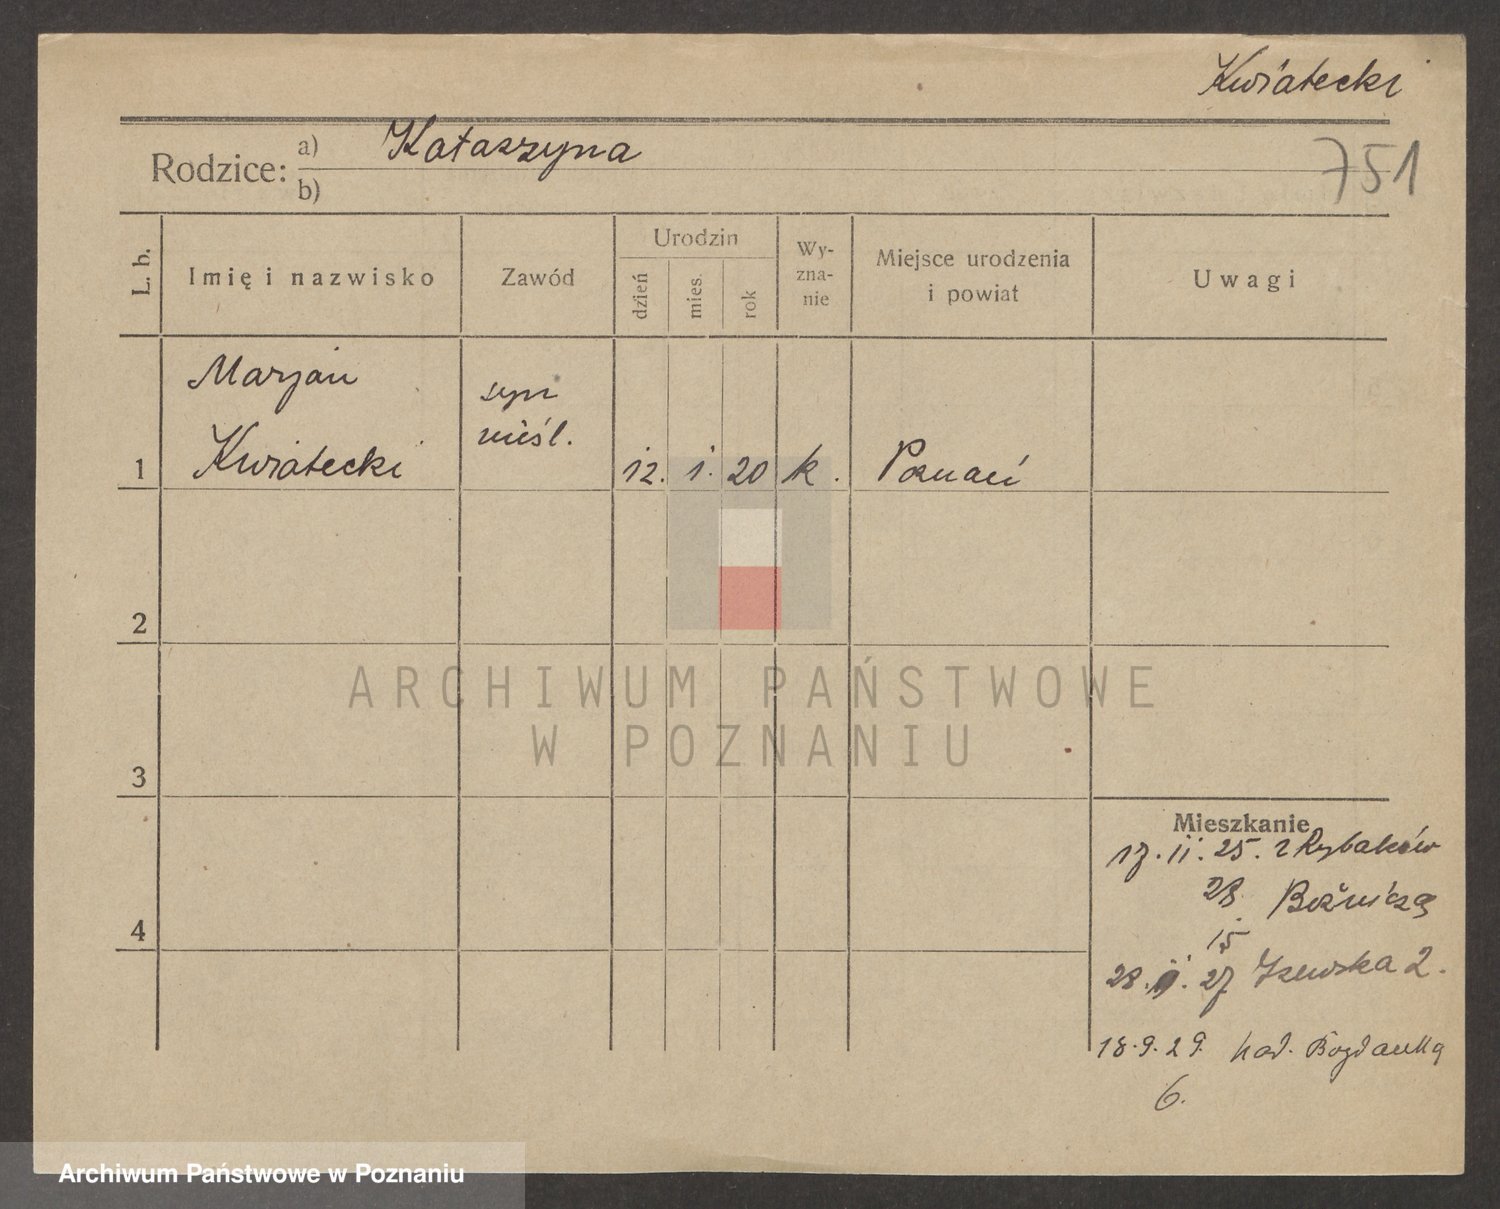 Kwiatecki
Rodzice: a) Katarzyna
751
b)
L. b.
Imię i nazwisko
Zawód
Urodzin
dzień
mies.
rok
Wy-
zna-
nie
Miejsce urodzenia
i powiat
Uwagi
Marjan
syn
nieśl.
1 Kwiatecki 12. 1. 20 k. Poznań
2
ARCHIWUM PAŃSTWOWE
W POZNANIU
3
Mieszkanie
17. 11. 25. z Rybaków
28. Bożnicza
4
15
28. 27 2.
18.9.29. nad. Bogdanką
6.
Archiwum Państwowe w Poznaniu